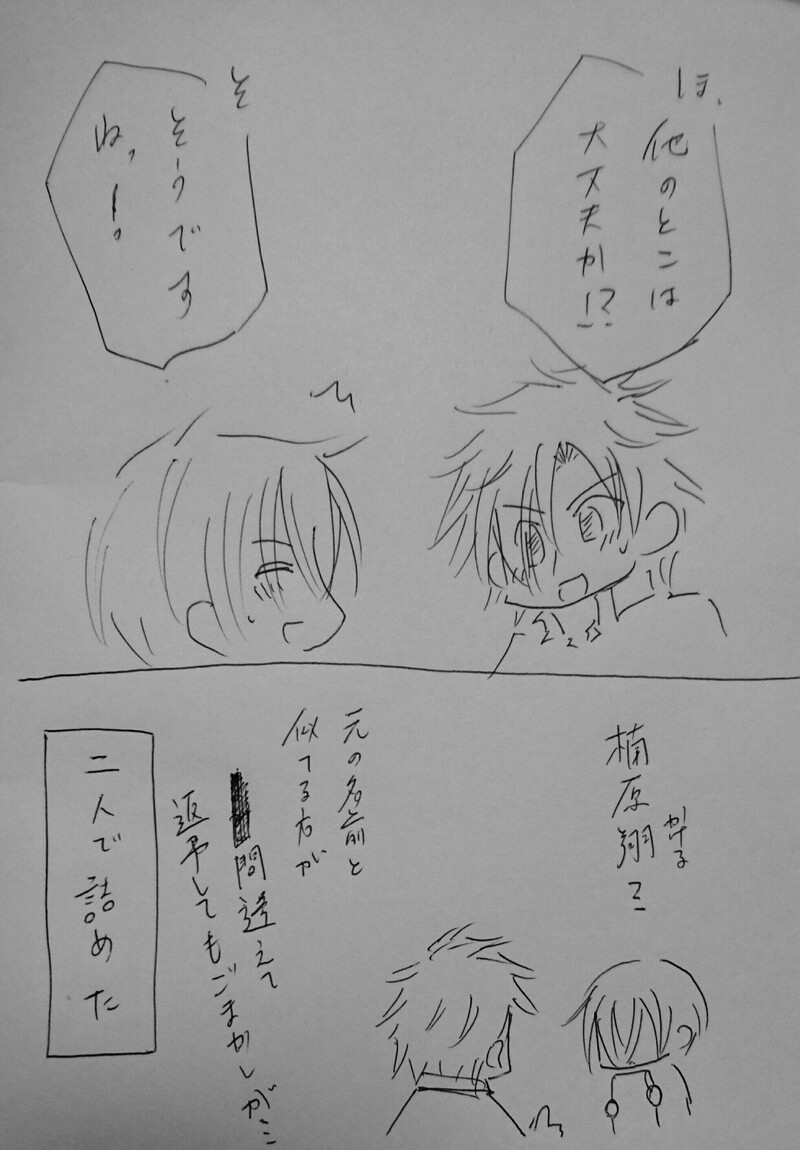 ほ、
他のとこは
大丈夫か!?
そ
そーです
ね、!。
楠原翔…
かける
元の名前と
似てる方が
間違えて
返事してもごまかしが…
二人で詰めた